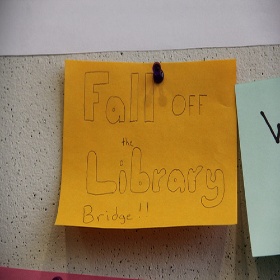 Fall OFF
the
Library
Bridge"